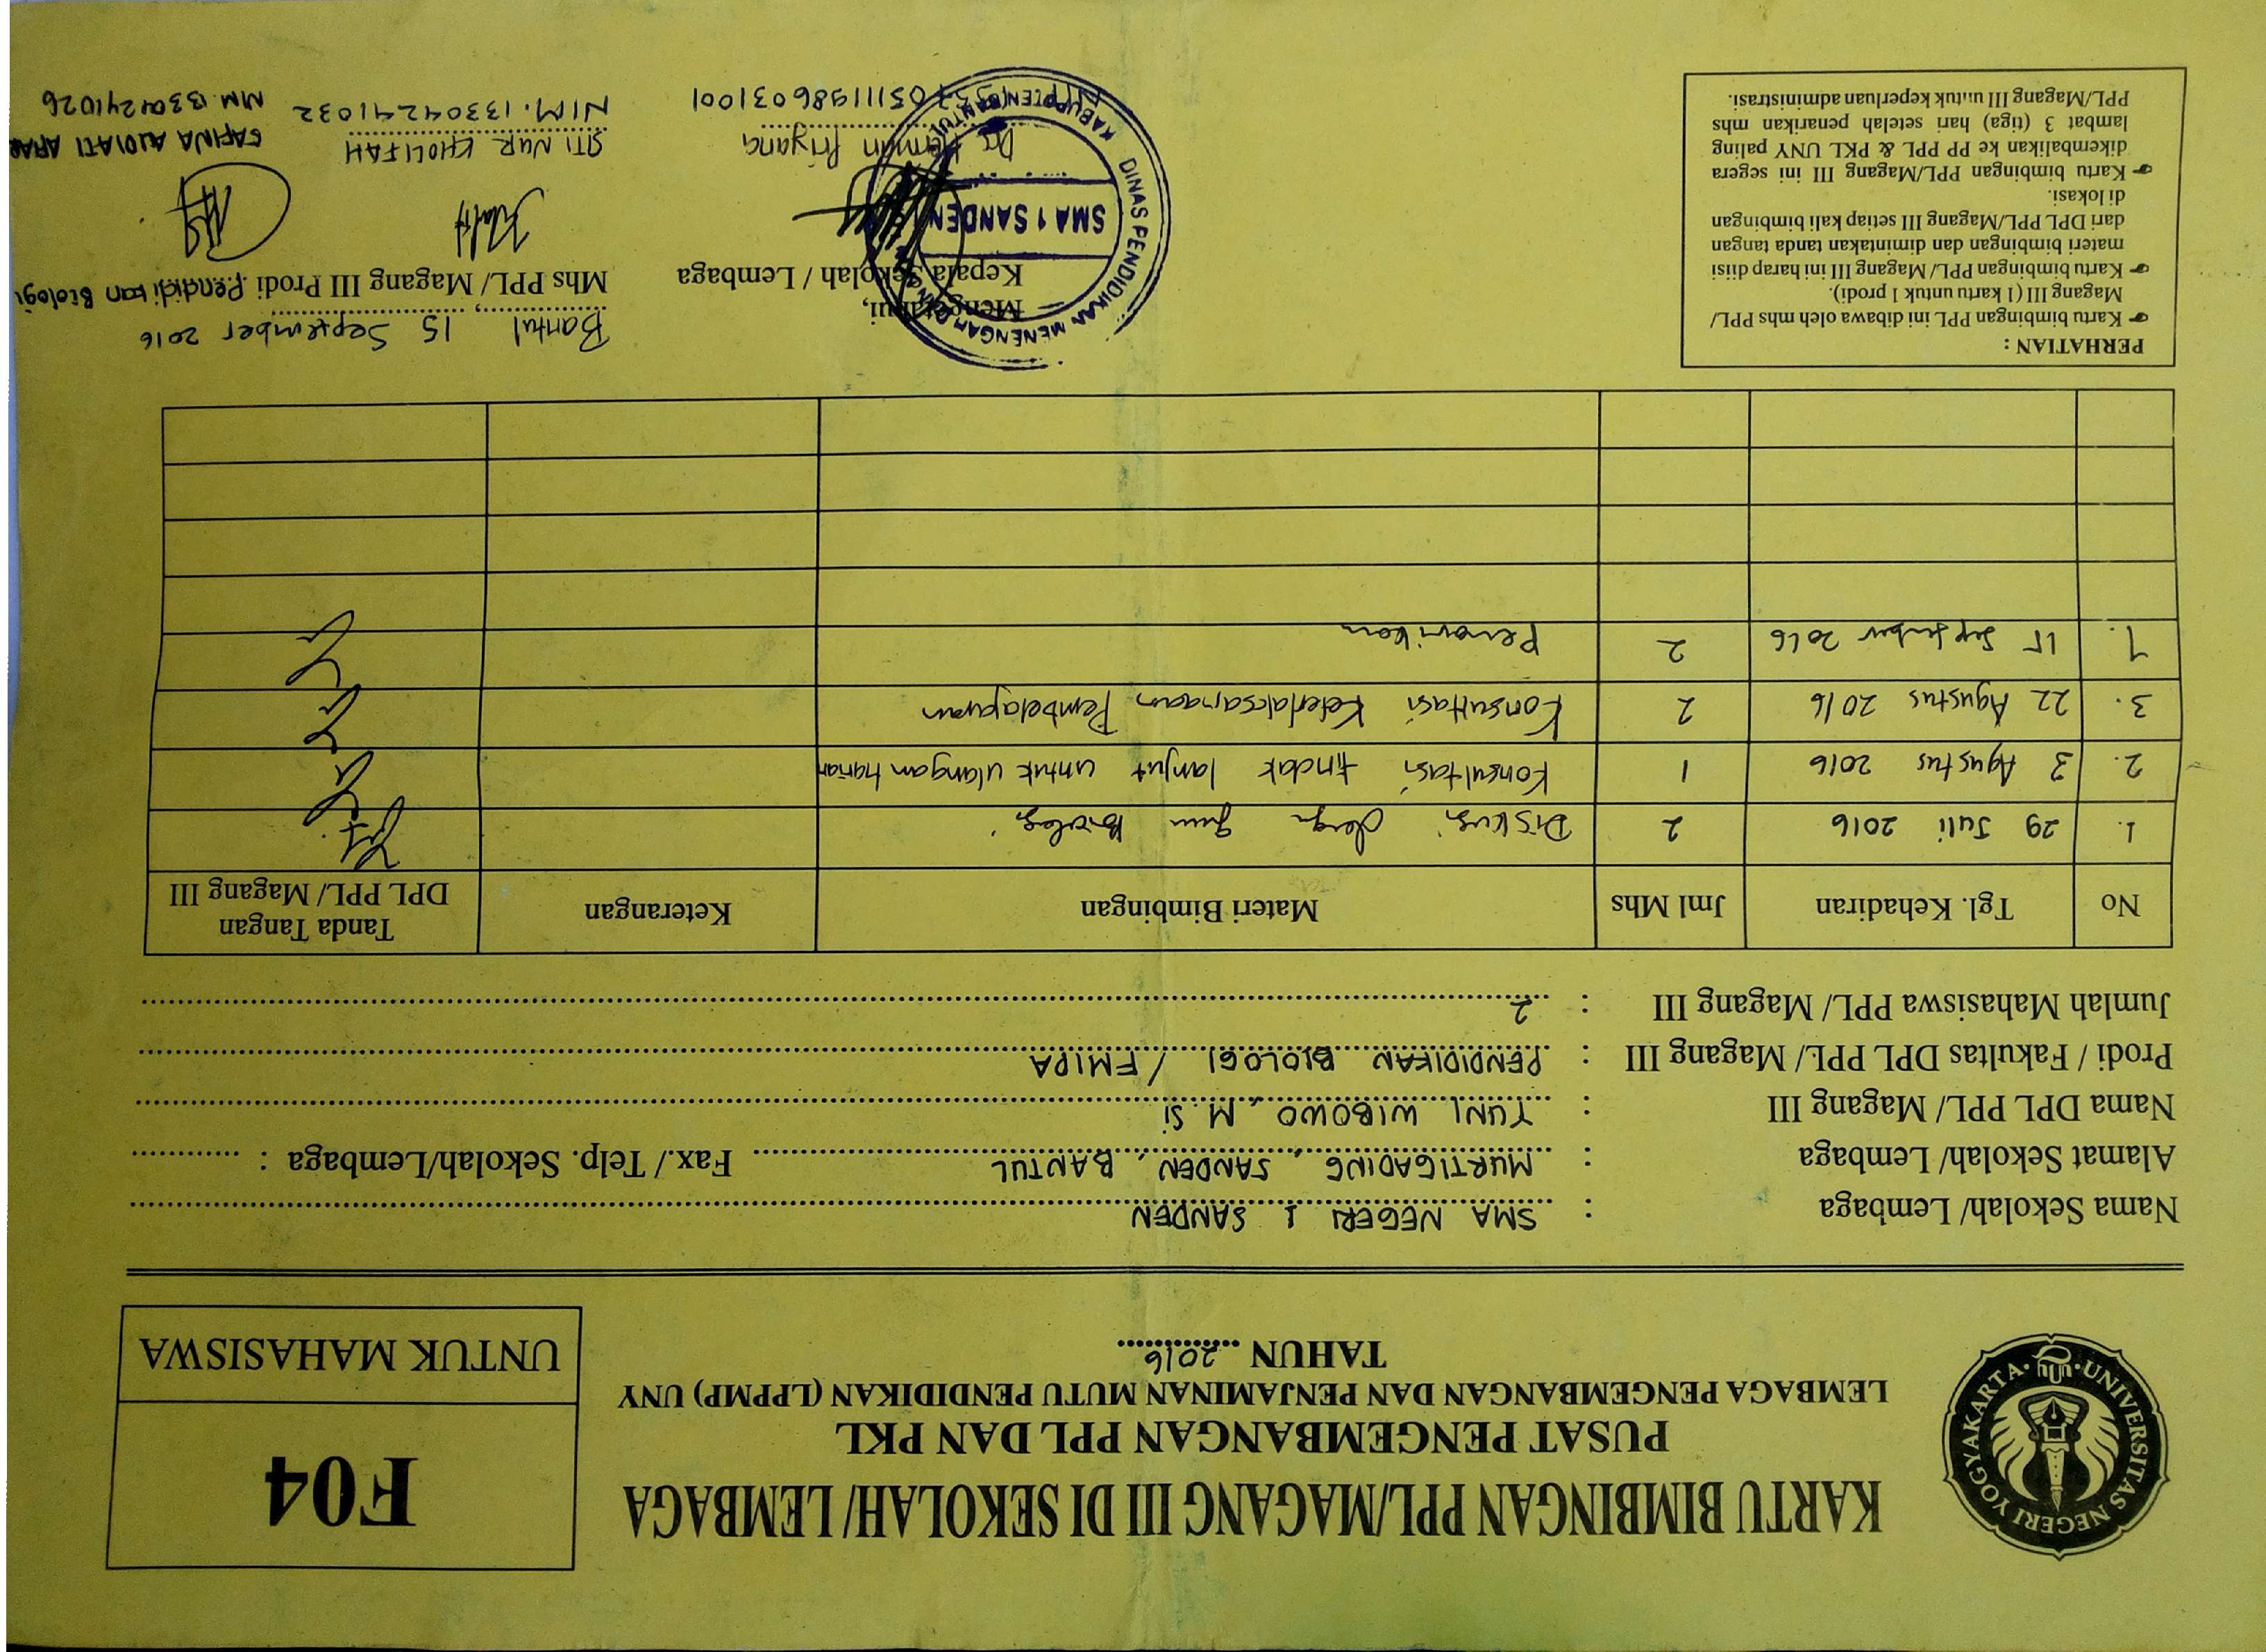 UNIVERSITAS NEGERI YOGYAKARTA
KARTU BIMBINGAN PPL/MAGANG III DI SEKOLAH/ LEMBAGA
PUSAT PENGEMBANGAN PPL DAN PKL
LEMBAGA PENGEMBANGAN DAN PENJAMINAN MUTU PENDIDIKAN (LPPMP) UNY
TAHUN 2016
F04
UNTUK MAHASISWA
Nama Sekolah/ Lembaga : SMA NEGERI 1 SANDEN
Alamat Sekolah/ Lembaga : MURTIGADING, SANDEN, BANTUL Fax./ Telp. Sekolah/Lembaga :
Nama DPL PPL/ Magang III : YUNI WIBOWO, M.Si
Prodi / Fakultas DPL PPL/ Magang III : PENDIDIKAN BIOLOGI / FMIPA
Jumlah Mahasiswa PPL/ Magang III : 2
No Tgl. Kehadiran Jml Mhs Materi Bimbingan Keterangan Tanda Tangan DPL PPL/ Magang III
1. 29 Juli 2016 2 Diskusi dengn guru Biologi
2. 3 Agustus 2016 1 Konsultasi tindak lanjut untuk ulangan harian
3. 22 Agustus 2016 2 Konsultasi Keterlaksanaan Pembelajaran
15 September 2016 2 Penarikan
PERHATIAN :
Kartu bimbingan PPL ini dibawa oleh mhs PPL/
Magang III (1 kartu untuk 1 prodi).
Kartu bimbingan PPL/ Magang III ini harap diisi
materi bimbingan dan dimintakan tanda tangan
dari DPL PPL/Magang III setiap kali bimbingan
di lokasi.
Kartu bimbingan PPL/Magang III ini segera
dikembalikan ke PP PPL & PKL UNY paling
lambat 3 (tiga) hari setelah penarikan mhs
PPL/Magang III untuk keperluan administrasi.
Mengetahui,
Kepala Sekolah / Lembaga
DINAS PENDIDIKAN MENENGAH DAN
SMA 1 SANDEN
KABUPATEN BANTUL
Priyana
Bantul, 15 September 2016
Mhs PPL/ Magang III Prodi Pendidikan Biologi
SITI NUR KHOLIFAH
NIM. 13304241032
NIM 13304241026